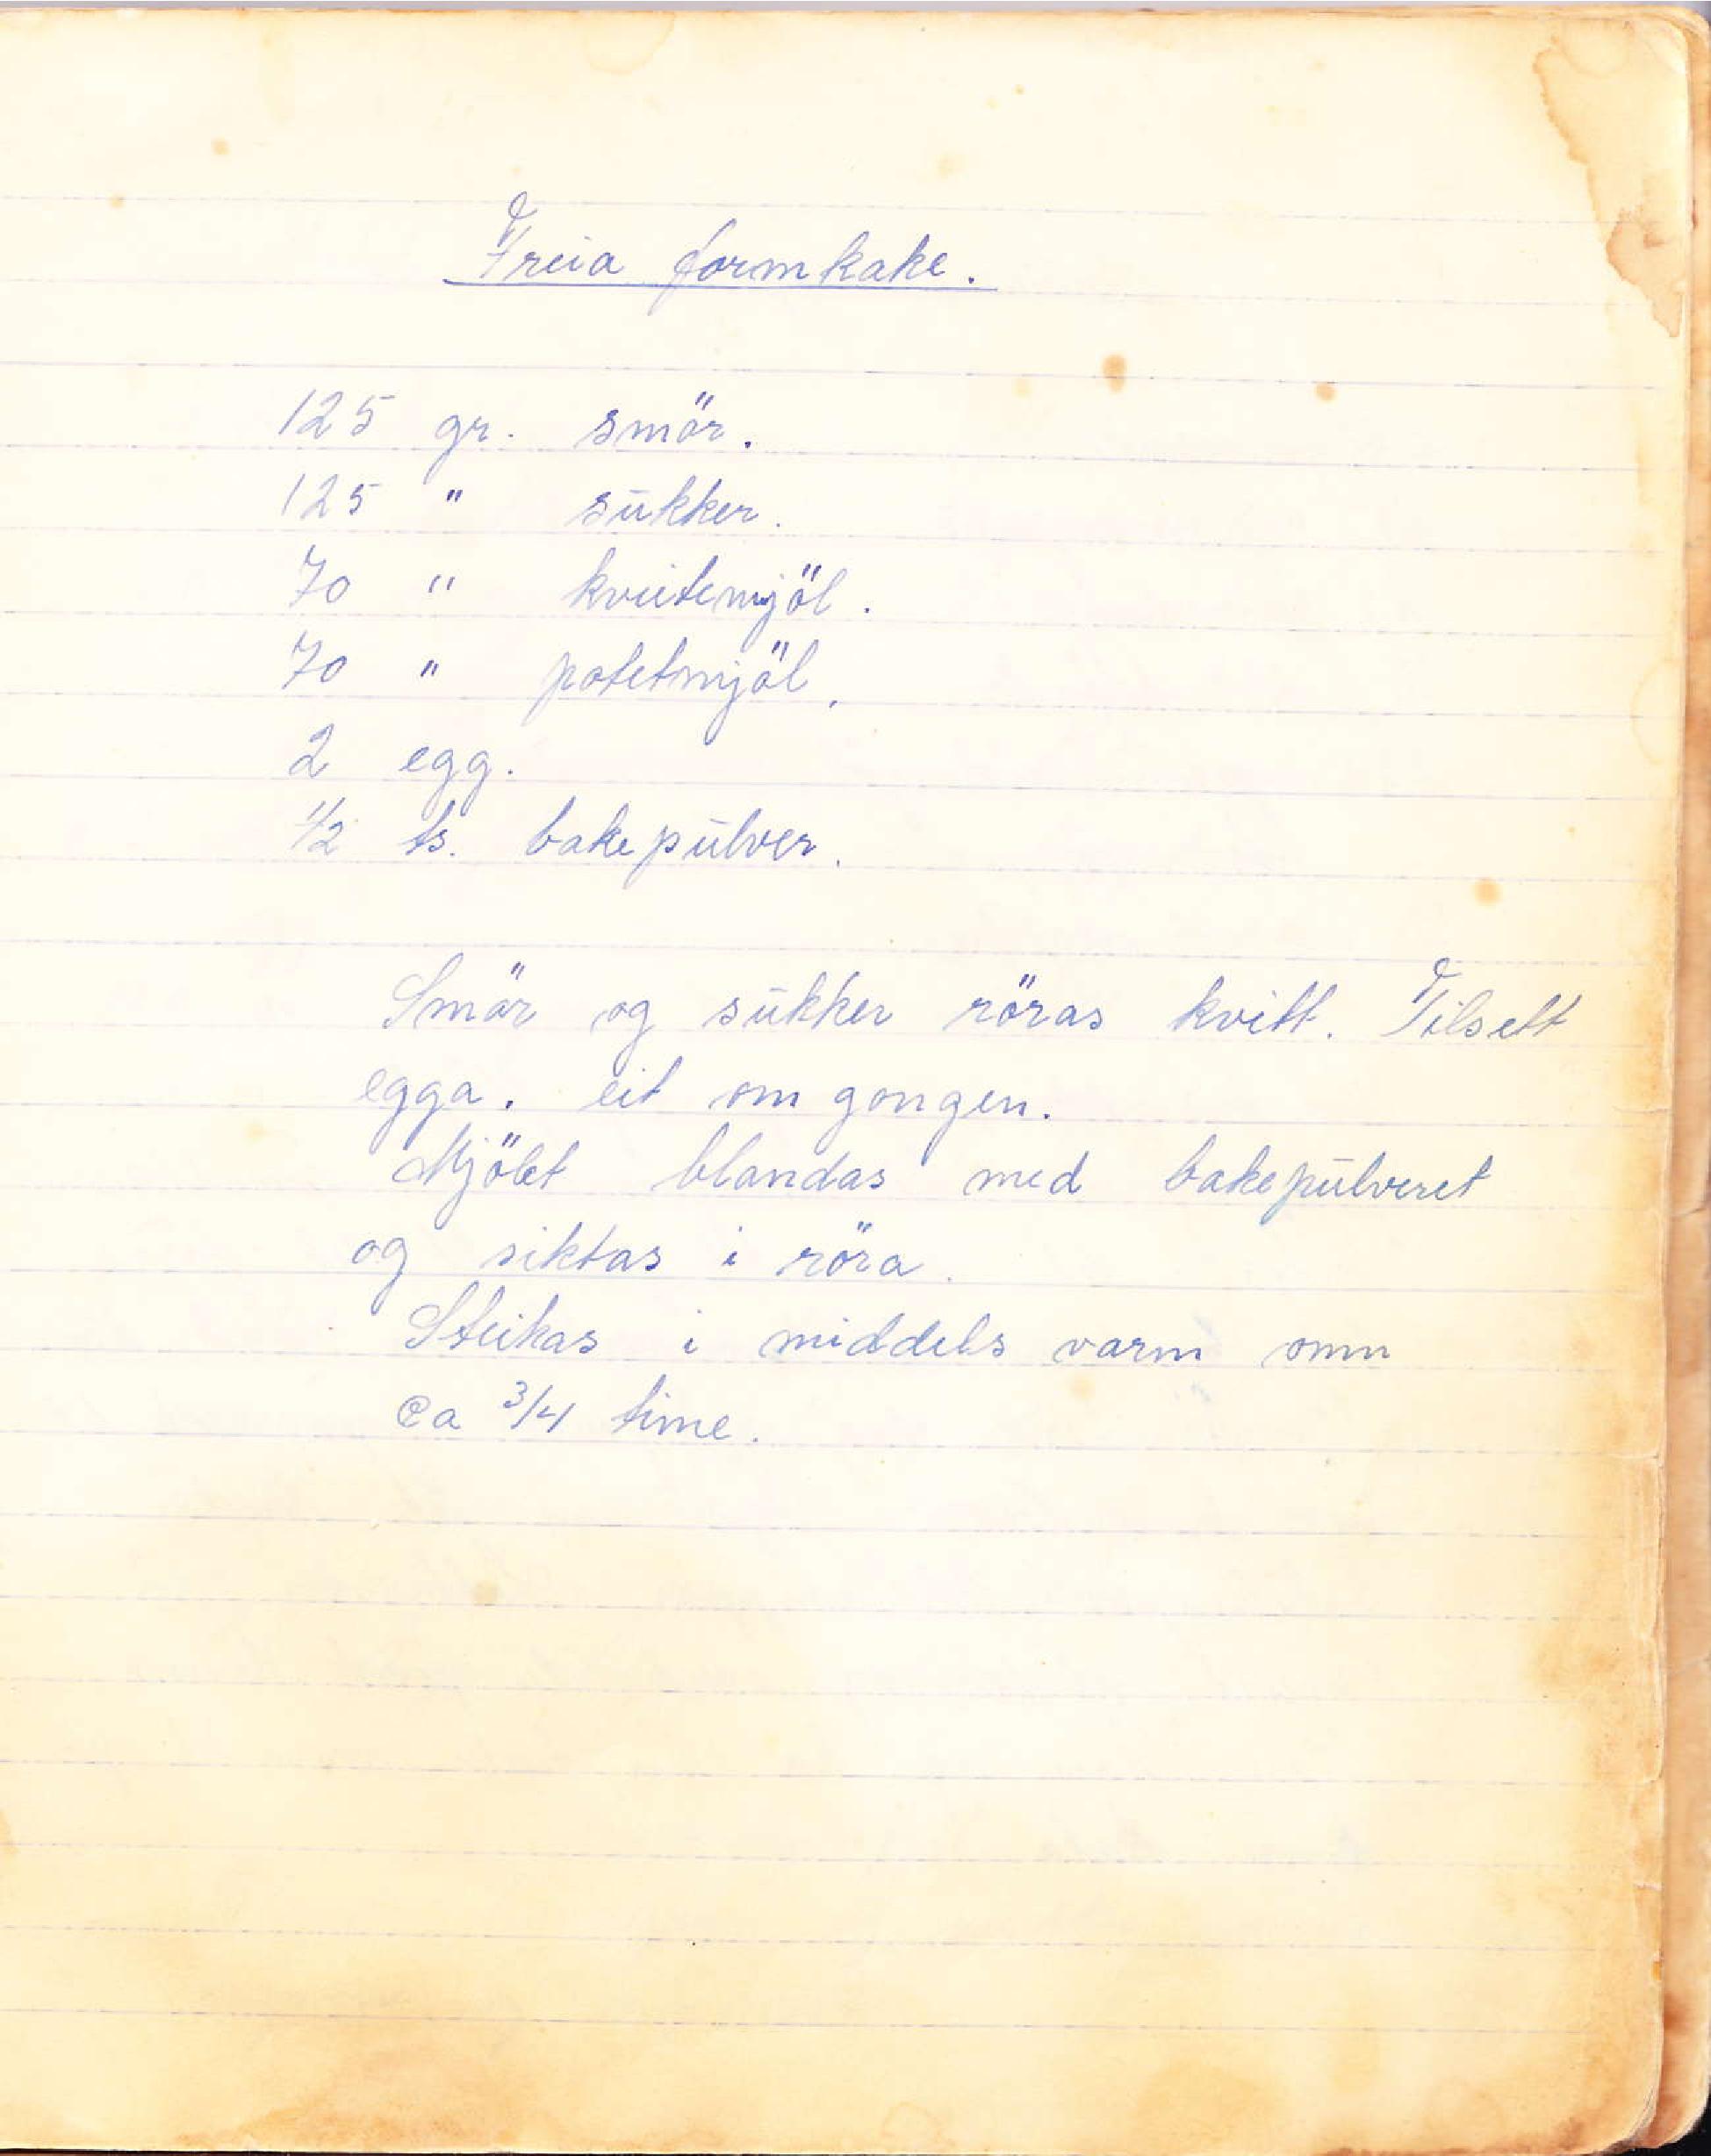 Freia formkake.
125 gr. smör.
125 " sūkker.
70 " kveitemjöl.
70 " potetmjöl.
2 egg.
1/2 ts. bakepūlver.
Smör og sūkker röras kvitt. Tilsett
egga. eit om gongen.
Mjölet blandas med bakepūlveret
og siktas i röra.
Steikas i middels varm omn
ca 3/4 time.